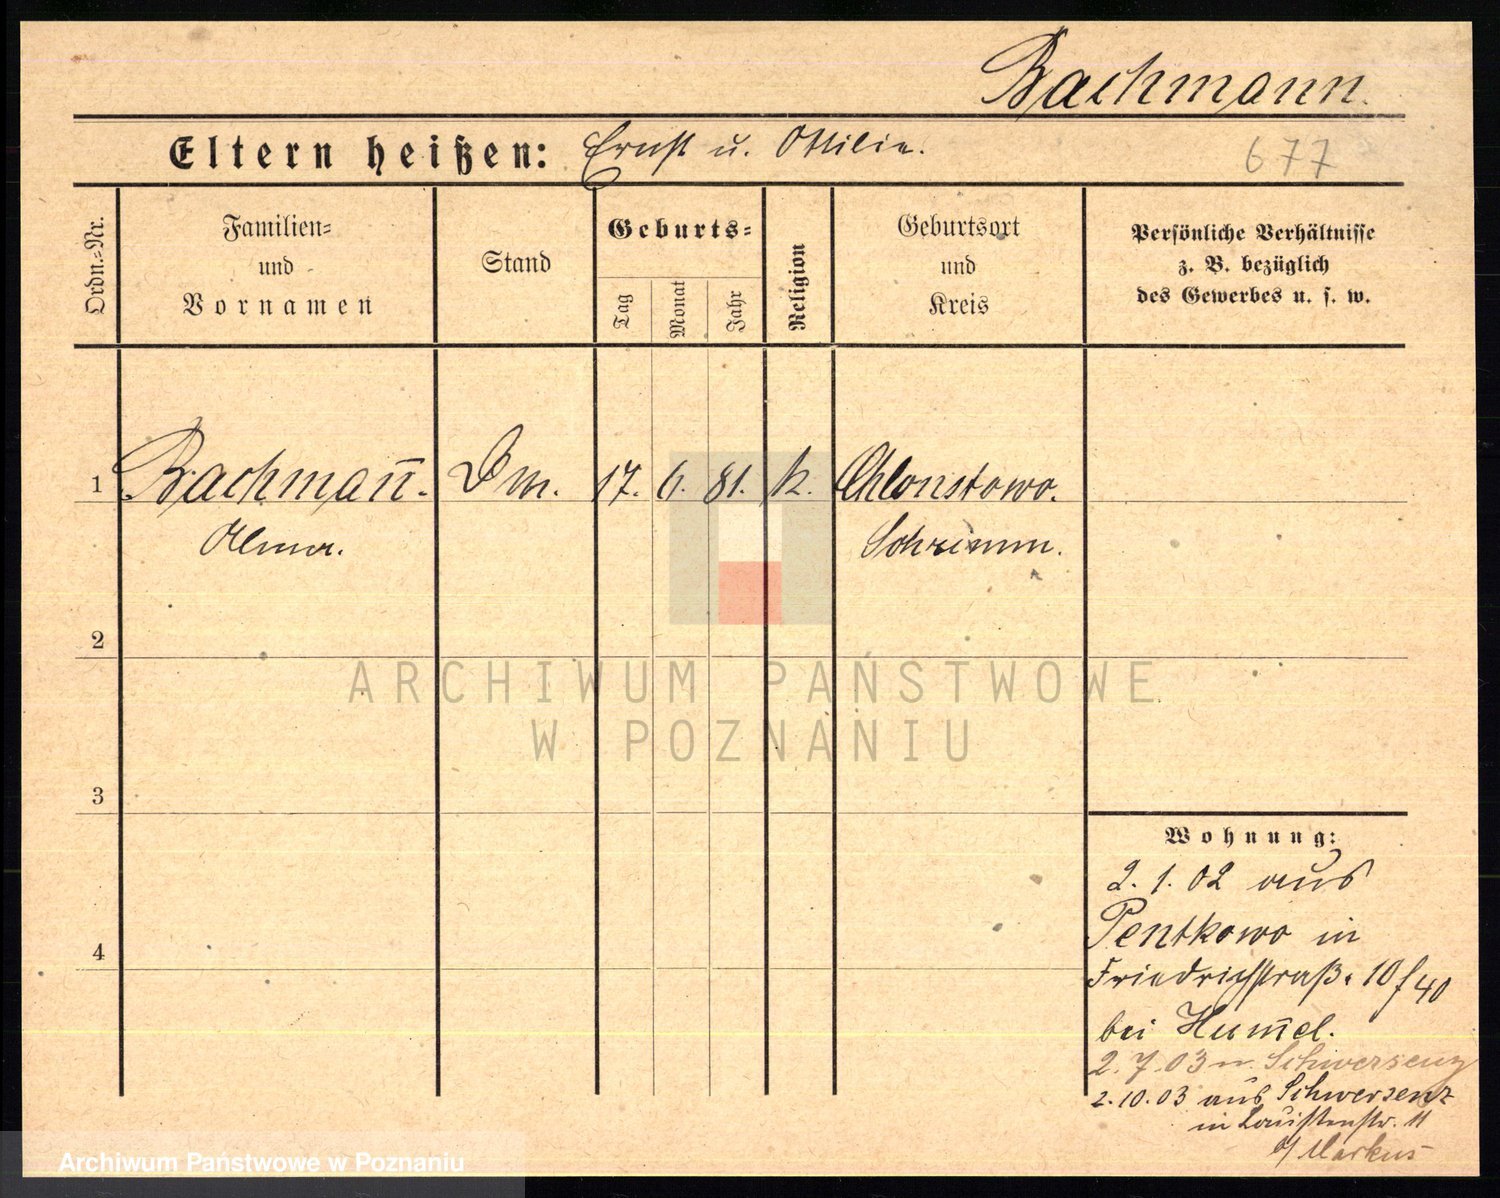 Bachmann.
Eltern heißen: Ernst u. Ottilie.
677
Ordn.-Nr.
Familien-
und
Vornamen
Stand
Geburts-
Tag
Monat
Jahr
Religion
Geburtsort
und
Kreis
Persönliche Verhältnisse
z. B. bezüglich
des Gewerbes u. s. w.
1 Bachman̄. Dm. 17. 6. 81. k. Chlonstowo.
Alma. Schrimm.
2
ARCHIWUM PAŃSTWOWE
W POZNANIU
3
4
Wohnung:
2. 1. 02 aus
Pentkowo in
Friedrichstraß. 10 / 40
bei Hum̄el.
2.7.03 n. Schwersenz
2.10.03 aus Schwersenz
in Louisenstr. 11
b/ Markus
Archiwum Państwowe w Poznaniu